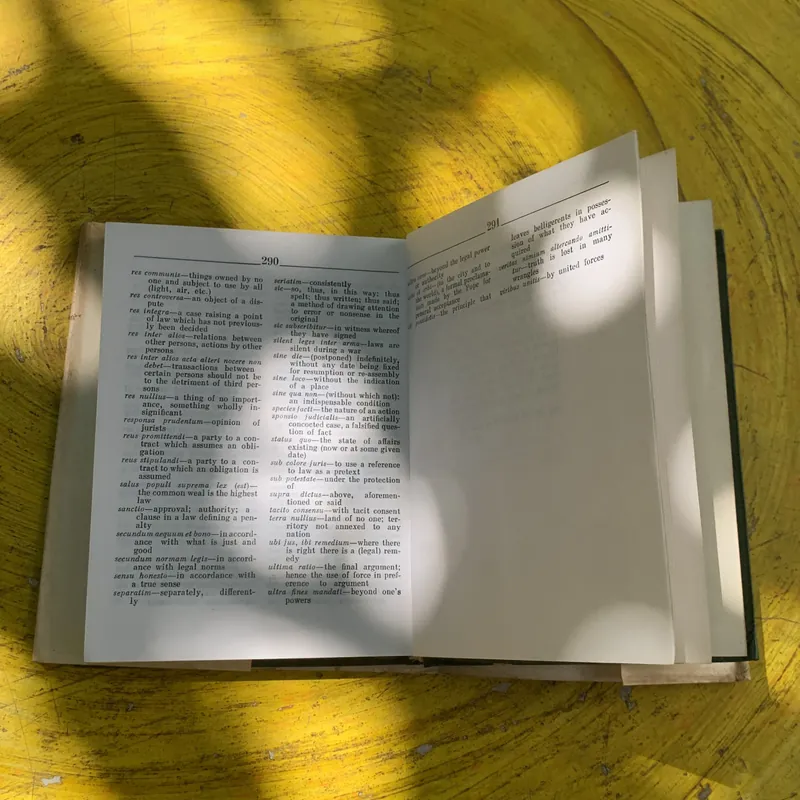 290
res communis—things owned by no
one and subject to use by all
(light, air, etc.)
res controversa—an object of a dis-
pute
res integra—a case raising a point
of law which has not previous-
ly been decided
res inter alios—relations between
other persons, actions by other
persons
res inter alios acta alteri nocere non
debet—transactions between
certain persons should not be
to the detriment of third per-
sons
res nullius—a thing of no import-
ance, something wholly in-
significant
responsa prudentum—opinion of
jurists
reus promittendi—a party to a con-
tract which assumes an obli-
gation
reus stipulandi—a party to a con-
tract to which an obligation is
assumed
salus populi suprema lex (est)—
the common weal is the highest
law
sanctio—approval; authority; a
clause in a law defining a pen-
alty
secundum aequum et bono—in accord-
ance with what is just and
good
secundum normam legis—in accord-
ance with legal norms
sensu honesto—in accordance with
a true sense
separatim—separately, different-
ly
seriatim—consistently
sic—so, thus, in this way; thus
spelt; thus written; thus said;
a method of drawing attention
to error or nonsense in the
original
sic subscribitur—in witness whereof
they have signed
silent leges inter arma—laws are
silent during a war
sine die—(postponed) indefinitely,
without any date being fixed
for resumption or re-assembly
sine loco—without the indication
of a place
sine qua non—(without which not):
an indispensable condition
species facti—the nature of an action
sponsio judicialis—an artificially
concocted case, a falsified ques-
tion of fact
status quo—the state of affairs
existing (now or at some given
date)
sub colore juris—to use a reference
to law as a pretext
sub potestate—under the protection
of
supra dictus—above, aforemen-
tioned or said
tacito consensu—with tacit consent
terra nullius—land of no one; ter-
ritory not annexed to any
nation
ubi jus, ibi remedium—where there
is right there is a (legal) rem-
edy
ultima ratio—the final argument;
hence the use of force in pref-
erence to argument
ultra fines mandati—beyond one's
powers
291
beyond the legal power
or authority
the city and to
the world, a formal proclama-
tion made by the Pope for
general acceptance
possidetis—the principle that
leaves belligerents in posses-
sion of what they have ac-
quired
veritas nimium altercando amitti-
tur—truth is lost in many
wrangles
viribus unitis—by united forces